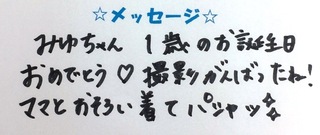 ☆メッセージ☆
みゆちゃん 1歳のお誕生日
おめでとう♡ 撮影がんばったね!
ママとおそろい着てパシャッ✨